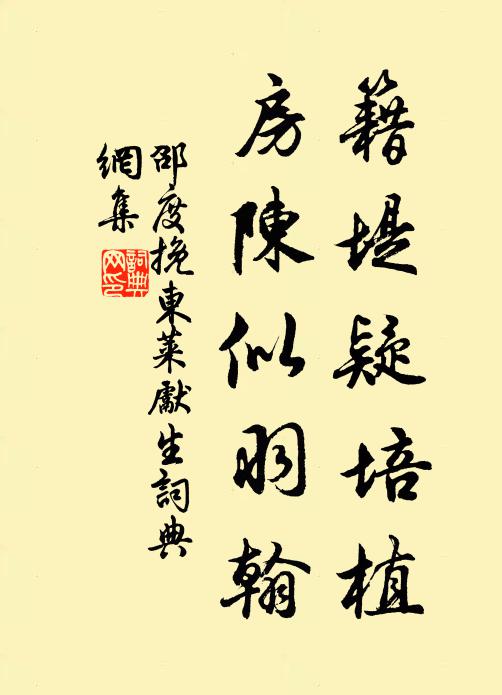 籍堤疑培植
房陳似羽翰
邵度挽東萊獻生詞典
網集
詞典
网印